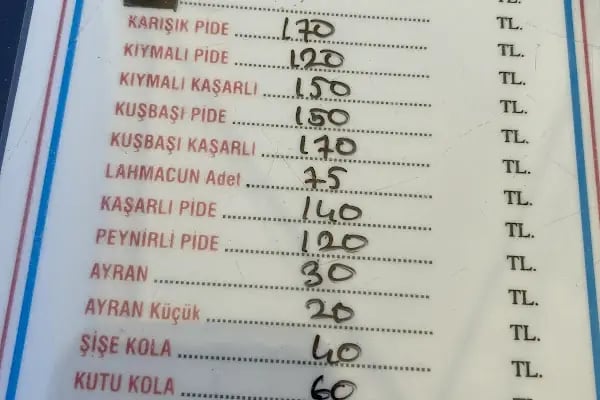 TL.
KARIŞIK PİDE ........ 170 ........ TL.
KIYMALI PİDE ........ 120 ........ TL.
KIYMALI KAŞARLI ........ 150 ........ TL.
KUŞBAŞI PİDE ........ 150 ........ TL.
KUŞBAŞI KAŞARLI ........ 170 ........ TL.
LAHMACUN Adet ........ 75 ........ TL.
KAŞARLI PİDE ........ 140 ........ TL.
PEYNİRLİ PİDE ........ 120 ........ TL.
AYRAN ........ 30 ........ TL.
AYRAN Küçük ........ 20 ........ TL.
ŞİŞE KOLA ........ 40 ........ TL.
KUTU KOLA ........ 60 ........ TL.